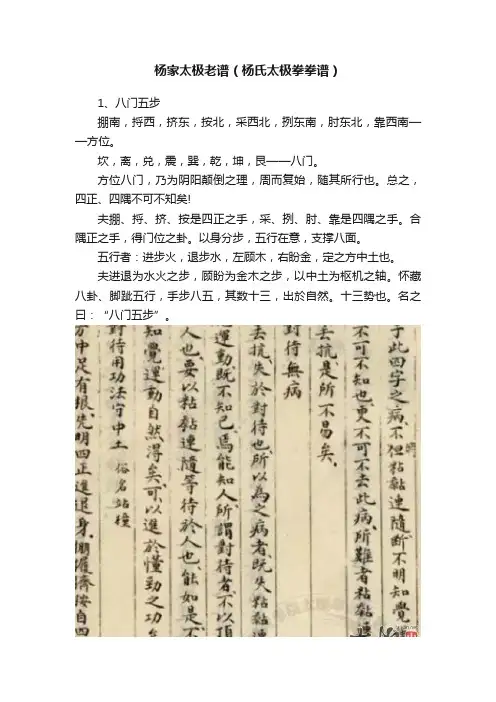 杨家太极老谱（杨氏太极拳拳谱）
1、八门五步
掤南，捋西，挤东，按北，采西北，挒东南，肘东北，靠西南—
—方位。
坎，离，兑，震，巽，乾，坤，艮——八门。
方位八门，乃为阴阳颠倒之理，周而复始，随其所行也。总之，
四正、四隅不可不知矣!
夫掤、捋、挤、按是四正之手，采、挒、肘、靠是四隅之手。合
隅正之手，得门位之卦。以身分步，五行在意，支撑八面。
五行者：进步火，退步水，左顾木，右盼金，定之方中土也。
夫进退为水火之步，顾盼为金木之步，以中土为枢机之轴。怀藏
八卦、脚跐五行，手步八五，其数十三，出於自然。十三势也。名之
曰：“八门五步”。
于此四字之病、不但粘黏連隨斷不明知覺
不可不知也、更不可不去此病、所難者粘黏連
丢抗、是所不易矣、
對待無病
丢抗、失於對待也、所以為之病者、既失粘黏連
運動既不知己、焉能知人、所謂對待者、不以頂
人也、要以粘黏連隨等待於人也、能如是、不
知覺運動自然得矣、可以進於懂勁之功
對待用功法守中土 俗名站樁
方中足有根、先明四正進退身、掤履擠按自四